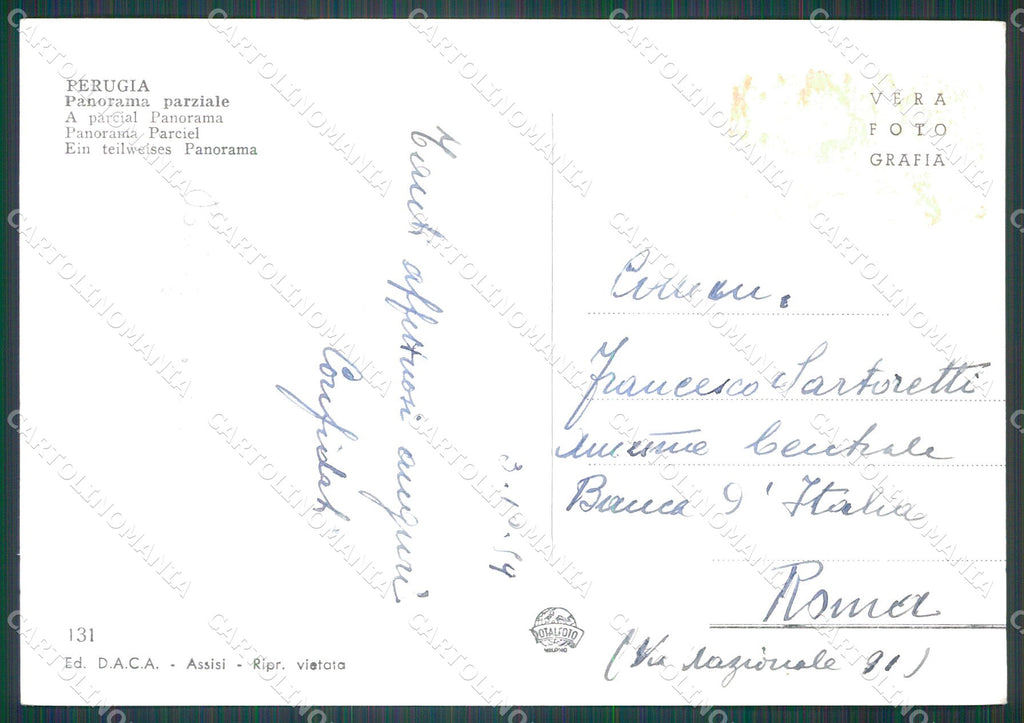 PERUGIA
Panorama parziale
A parcial Panorama
Panorama Parciel
Ein teilweises Panorama
VERA
FOTO
GRAFIA
Tanti affettuosi auguri
3.10.54
Comm.
Francesco Sartoretti
Centrale
Banca d'Italia
Roma
(Via Nazionale 91)
131
Ed. D.A.C.A. - Assisi - Ripr. vietata
TOTALFOTO
MILANO
CARTOLINOMANIA